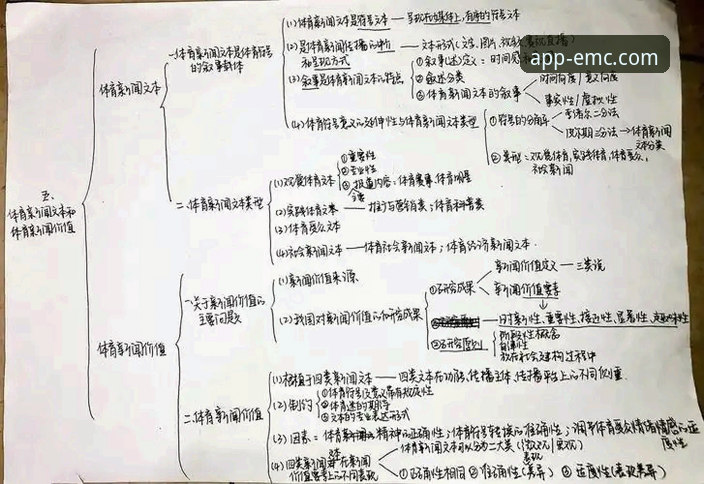 (1) 体育新闻文本是符号文本 — 呈现在媒体上,有序的符号文本
一.体育新闻文本是体育符号的叙事载体
(2) 是体育新闻传播的中介和呈现方式 — 文本形式(文字、图片、视频
app-emc.com
① 叙事(述)定义:时间
体育新闻文本
(3) 叙事是体育新闻文本的特点
② 叙述分类
时间向度/意义向度
③ 体育新闻文本的叙事
事实性/虚拟性
(4) 体育符号意义的延伸性与体育新闻文本类型
① 符号的分角度
索绪尔二分法
皮尔斯三分法→体育新闻文本分类
② 类型:观赏体育,实践体育,体育受众,社会新闻
五、体育新闻文本和体育新闻价值
二.体育新闻文本类型
(1) 观赏体育文本
① 重要性
② 专业性
③ 报道内容:体育赛事,体育明星
(2) 实践体育文本 — 推广与营销自类;体育科普类
(3) 体育受众文本
(4) 社会新闻文本 — 体育社会新闻文本;体育经济新闻文本.
体育新闻价值
一.关于新闻价值的主要问题
(1) 新闻价值来源
(2) 我国对新闻价值的研究成果
① 研究成果
新闻价值定义 — 三类说
新闻价值要素
时新性、重要性、接近性、显著性、
③ 研究原则
阶段性概念
自律性
放在社会建构过程中
二.体育新闻价值
(1) 根植于四类新闻文本 — 四类文本在功能,传播主体,传播平台上的不同侧重.
(2) 制约
① 体育符号意义带有规定性
② 体育迷的期待
③ 文本的专业表达形式
(3) 因素:体育精神的正确性;体育符号转换的准确性;调节体育受众情绪情感的适度性
(4) 四类新闻文本在新闻价值要素上的不同表现
体育新闻文本可以分为二大类
① 正确性相同 ② 准确性(差异) ③ 适度性(表现差异)